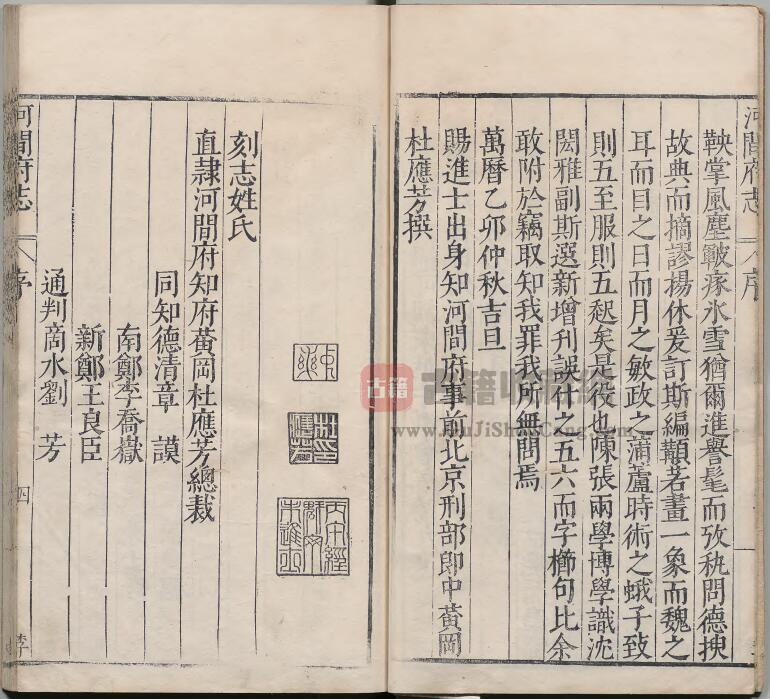 鞅掌風塵皸瘃氷雪猶爾進譽髦而攷秇問德掞
故典而摘謬揚休爰訂斯編顜若畫一象而魏之
耳而目之日而月之敏政之蒲蘆時術之蛾子致
則五至服則五起矣是役也陳張兩學博學識沈
閎雅副斯選新增刊誤什之五六而字櫛句比余
敢附於竊取知我罪我所無問焉
萬曆乙卯仲秋吉旦
賜進士出身知河間府事前北京刑部郎中黃岡
杜應芳撰
河間府志
序
刻志姓氏
直隷河間府知府黃岡杜應芳總裁
同知德清章謨
南鄭李喬嶽
新鄭王良臣
通判商水劉芳
河間府志
序
四
古籍
www.GuJiShuCang.com